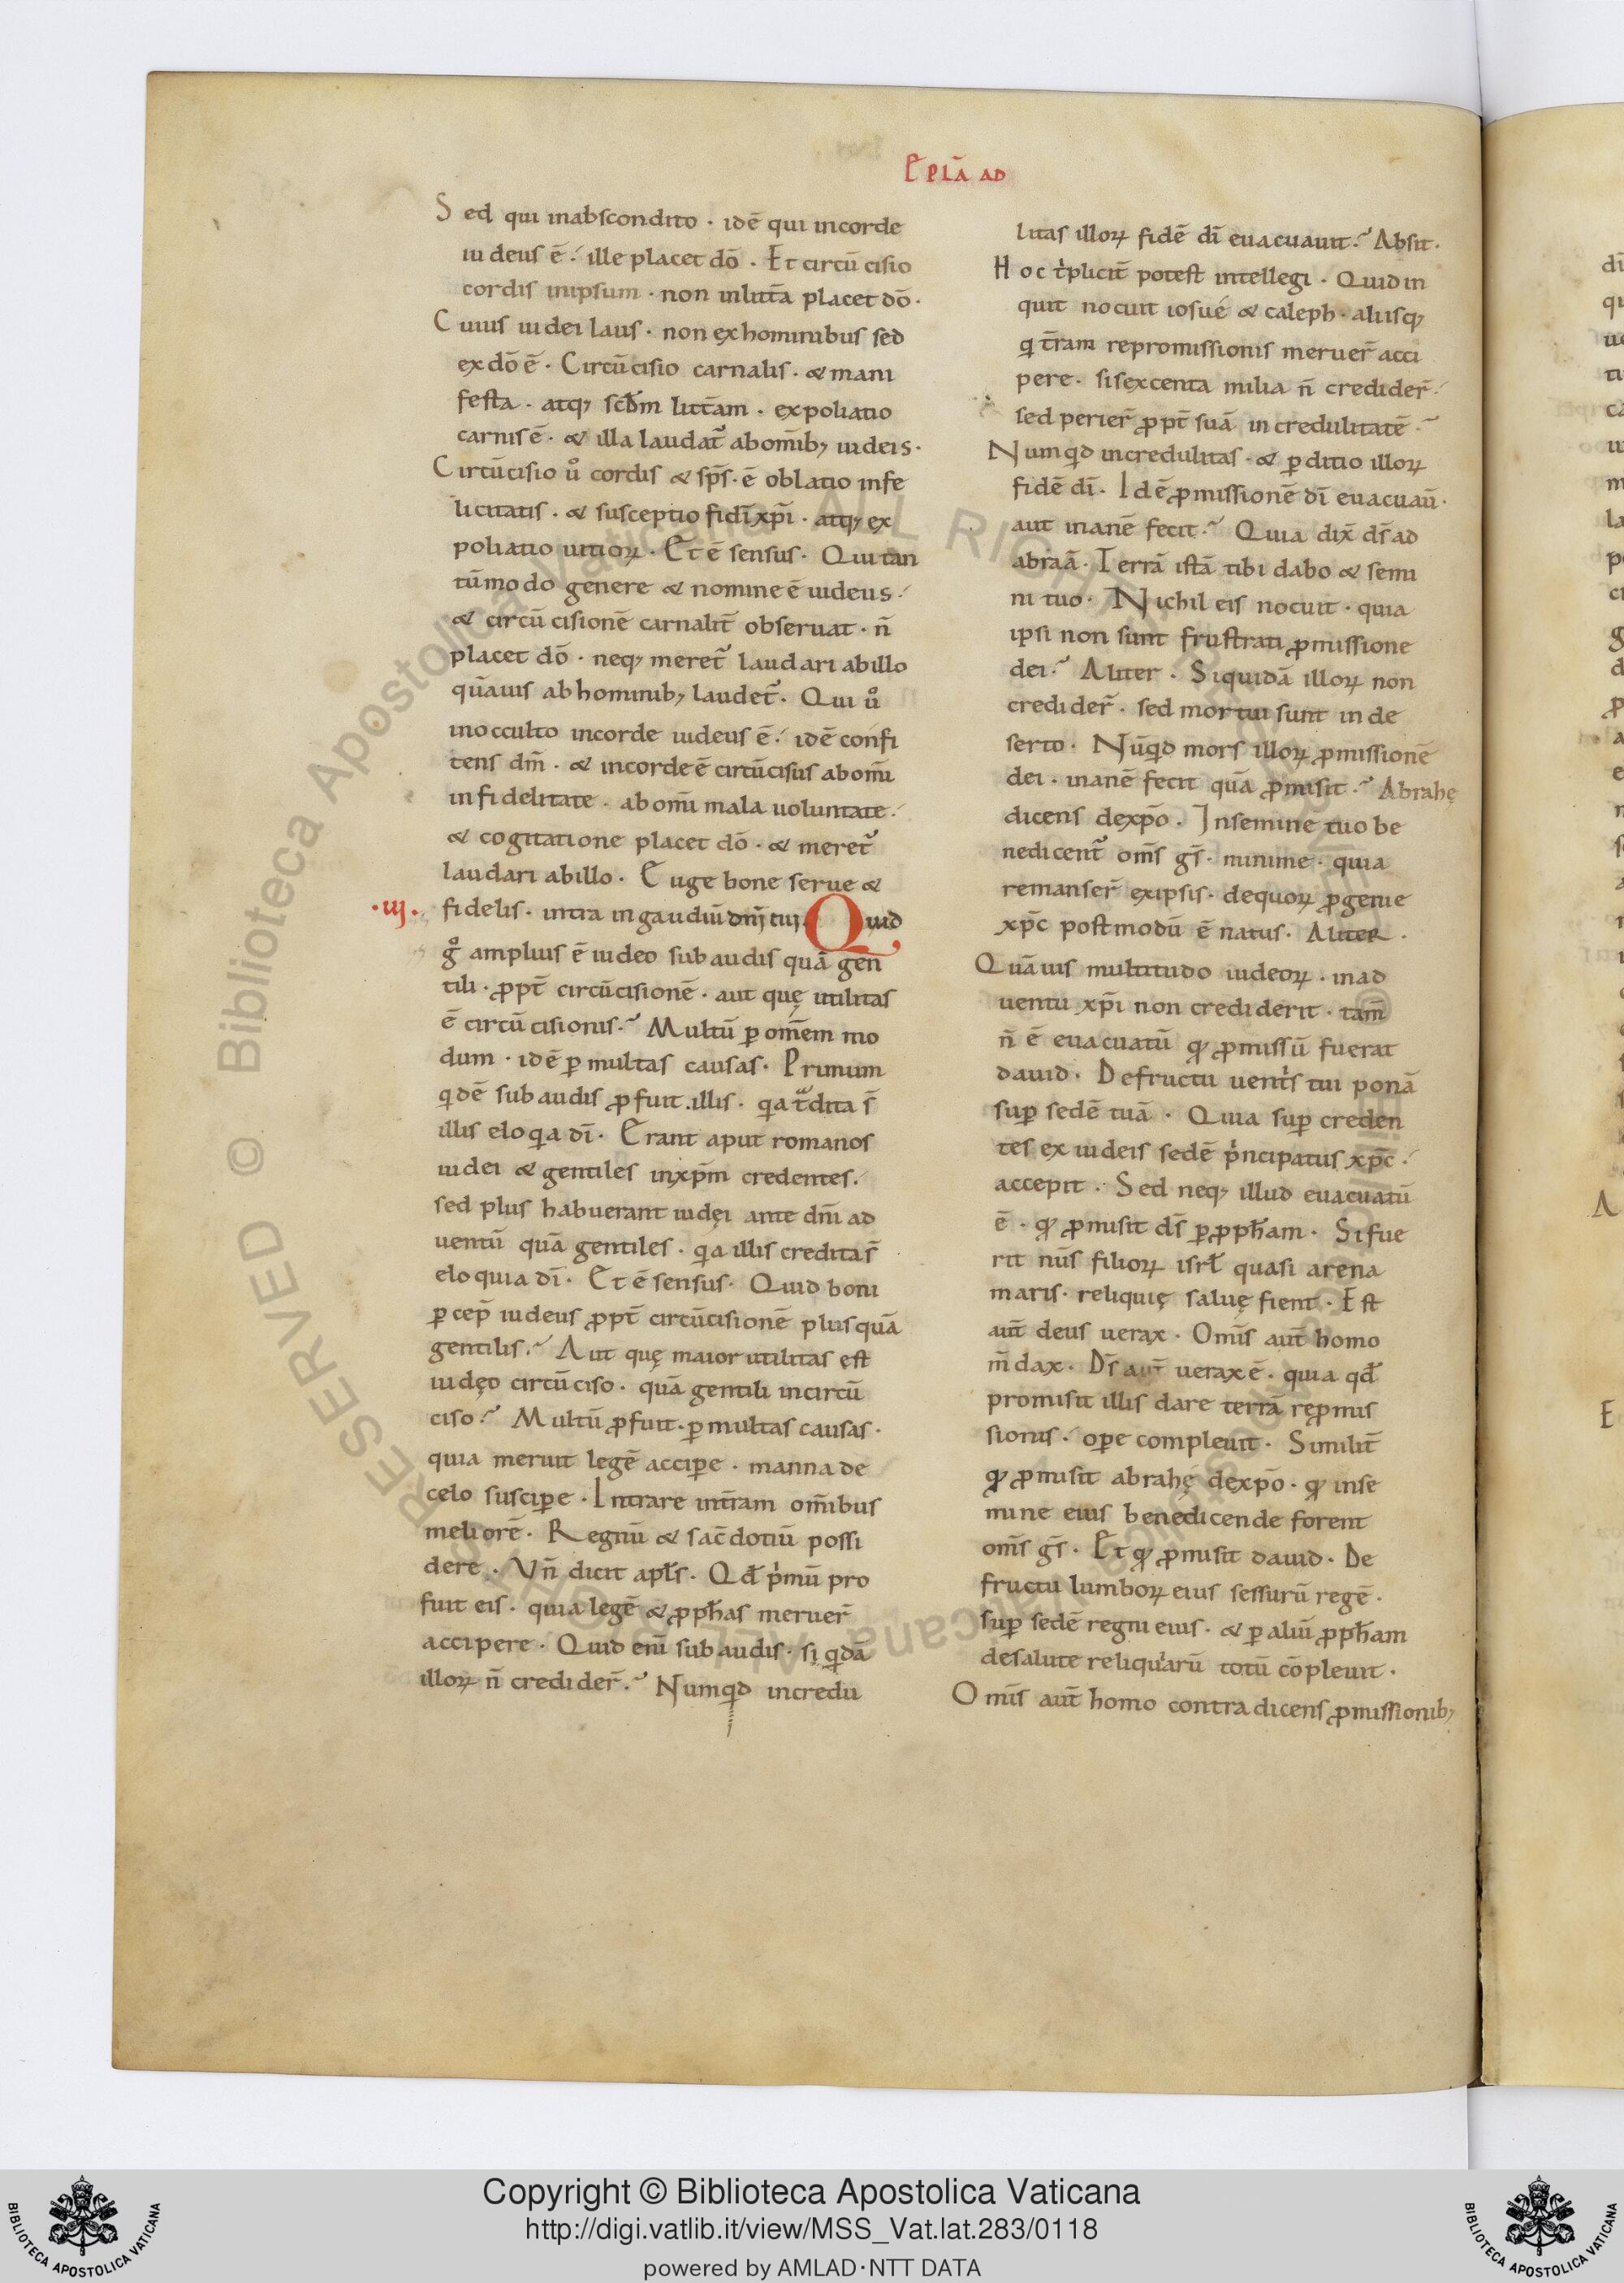 Eplā ad
Sed qui inabscondito · idē qui incorde
iudeus ē · ille placet dō · Et circū cisio
cordis inipsum · non inlitt̄a placet dō ·
Cuius iudei laus · non exhominibus sed
ex dō ē · Circūcisio carnalis · & mani
festa · atq; scd̄m litt̄am · expoliatio
carnis ē · & illa laudat᷑ abomīb; iudeis ·
Circūcisio uͦ cordis & sp̄s · ē oblatio infe
licitatis · & susceptio fidī xp̄i · atq; ex
poliatio uitioꝝ · Et ē sensus · Qui tan
tūmodo genere & nomine ē iudeus ·
& circū cisionē carnalit̄ obseruat · n̄
placet dō · neq; meret᷑ laudari abillo
quāuis ab hominib; laudet᷑ · Qui uͦ
inocculto incorde iudeus ē · idē confi
tens dm̄ · & incorde ē circūcisus abomī
infidelitate · abomī mala uoluntate ·
& cogitatione placet dō · & meret᷑
laudari abillo · Euge bone serue &
·iij· fidelis · intra in gaudiū dn̄j tuj · Quid
gͦ amplius ē iudeo subaudis quā gen
tili · ꝓpt̄ circūcisionē · aut quę utilitas
ē circū cisionis · Multū ꝑ om̄em mo
dum · idē ꝑ multas causas · Primum
qdē subaudis ꝓfuit illis · qa tͣdita s̄
illis eloqia dī · Erant aput romanos
iudei & gentiles inxp̄m credentes ·
sed plus habuerant iudęi ante dn̄i ad
uentū quā gentiles · qa illis credita s̄
eloquia dī · Et ē sensus · Quid boni
ꝑcep̄ iudeus ꝓpt̄ circūcisionē plusquā
gentilis · Aut quę maior utilitas ęst
iudęo circūciso · quā gentili incircū
ciso · Multū ꝓfuit · ꝑ multas causas ·
quia meruit legē accipe · manna de
celo suscipe · Intrare int̄ram om̄ibus
meliorē · Regnū & sac̄dotiū possi
dere · Vn̄ dicit apl̄s · Qđ pͥmū pro
fuit eis · quia legē & ꝓph̄as meruer̄
accipere · Quid enī subaudis · si qͥdā
illoꝝ n̄ credider̄ · Numqͥd incredu
litas illoꝝ fidē dī euacuauit · Absit ·
Hoc tͥplicit̄ potest intellegi · Quid in
quit nocuit iosué & caleph · aliisq;
q t̄ram repromissionis meruer̄ acci
pere · si sexcenta milia n̄ credider̄ ·
sed perier̄ ꝓpt̄ suā incredulitatē ·
Numqͥd incredulitas · & ꝑditio illoꝝ
fidē dī · Idē ꝓmissionē dī euacuaū ·
aut inanē fecit · Quia dix̄ ds̄ ad
abraā · Terrā istā tibi dabo & semi
ni tuo · Nichil eis nocuit · quia
ipsi non sunt frustrati ꝓmissione
dei · Aliter · Si quidā illoꝝ non
credider̄ · sed mortui sunt in de
serto · Nūqͥd mors illoꝝ ꝓmissionē
dei · inanē fecit quā ꝓmisit · Abrahę
dicens dexp̄o · Insemine tuo be
nedicent᷑ om̄s gs̄ · minime · quia
remanser̄ exipsis · dequoꝝ ꝓgenie
xp̄c postmodū ē natus · Aliter ·
Quāuis multitudo iudeoꝝ · inad
uentu xp̄i non crediderit · tam̄
n̄ ē euacuatū qͩ ꝓmissū fuerat
dauid · Defructu uent̄s tui ponā
sup sedē tuā · Quia sup creden
tes ex iudeis sedē pͥncipatus xp̄c ·
accepit · Sed neq; illud euacuatū
ē · qͩ ꝓmisit ds̄ ꝑ ꝓph̄am · Si fue
rit nūs filioꝝ isrl̄ quasi arena
maris · reliquię saluę fient · Est
aut̄ deus uerax · Omīs aut̄ homo
m̄dax · Ds̄ aut̄ uerax ē · quia qđ
promisit illis dare terrā reꝓmis
sionis · ope compleuit · Similit̄
qͩ ꝓmisit abrahę dexp̄o · qͩ inse
mine eius benedicende forent
om̄s gs̄ · Et qͩ ꝓmisit dauid · De
fructu lumboꝝ eius sessurū regē ·
sup sedē regni eius · & ꝑ aliū ꝓph̄am
desalute reliquͥarū totū cōpleuit ·
Omīs aut̄ homo contradicens ꝓmissionib;
Copyright © Biblioteca Apostolica Vaticana
http://digi.vatlib.it/view/MSS_Vat.lat.283/0118
powered by AMLAD·NTT DATA